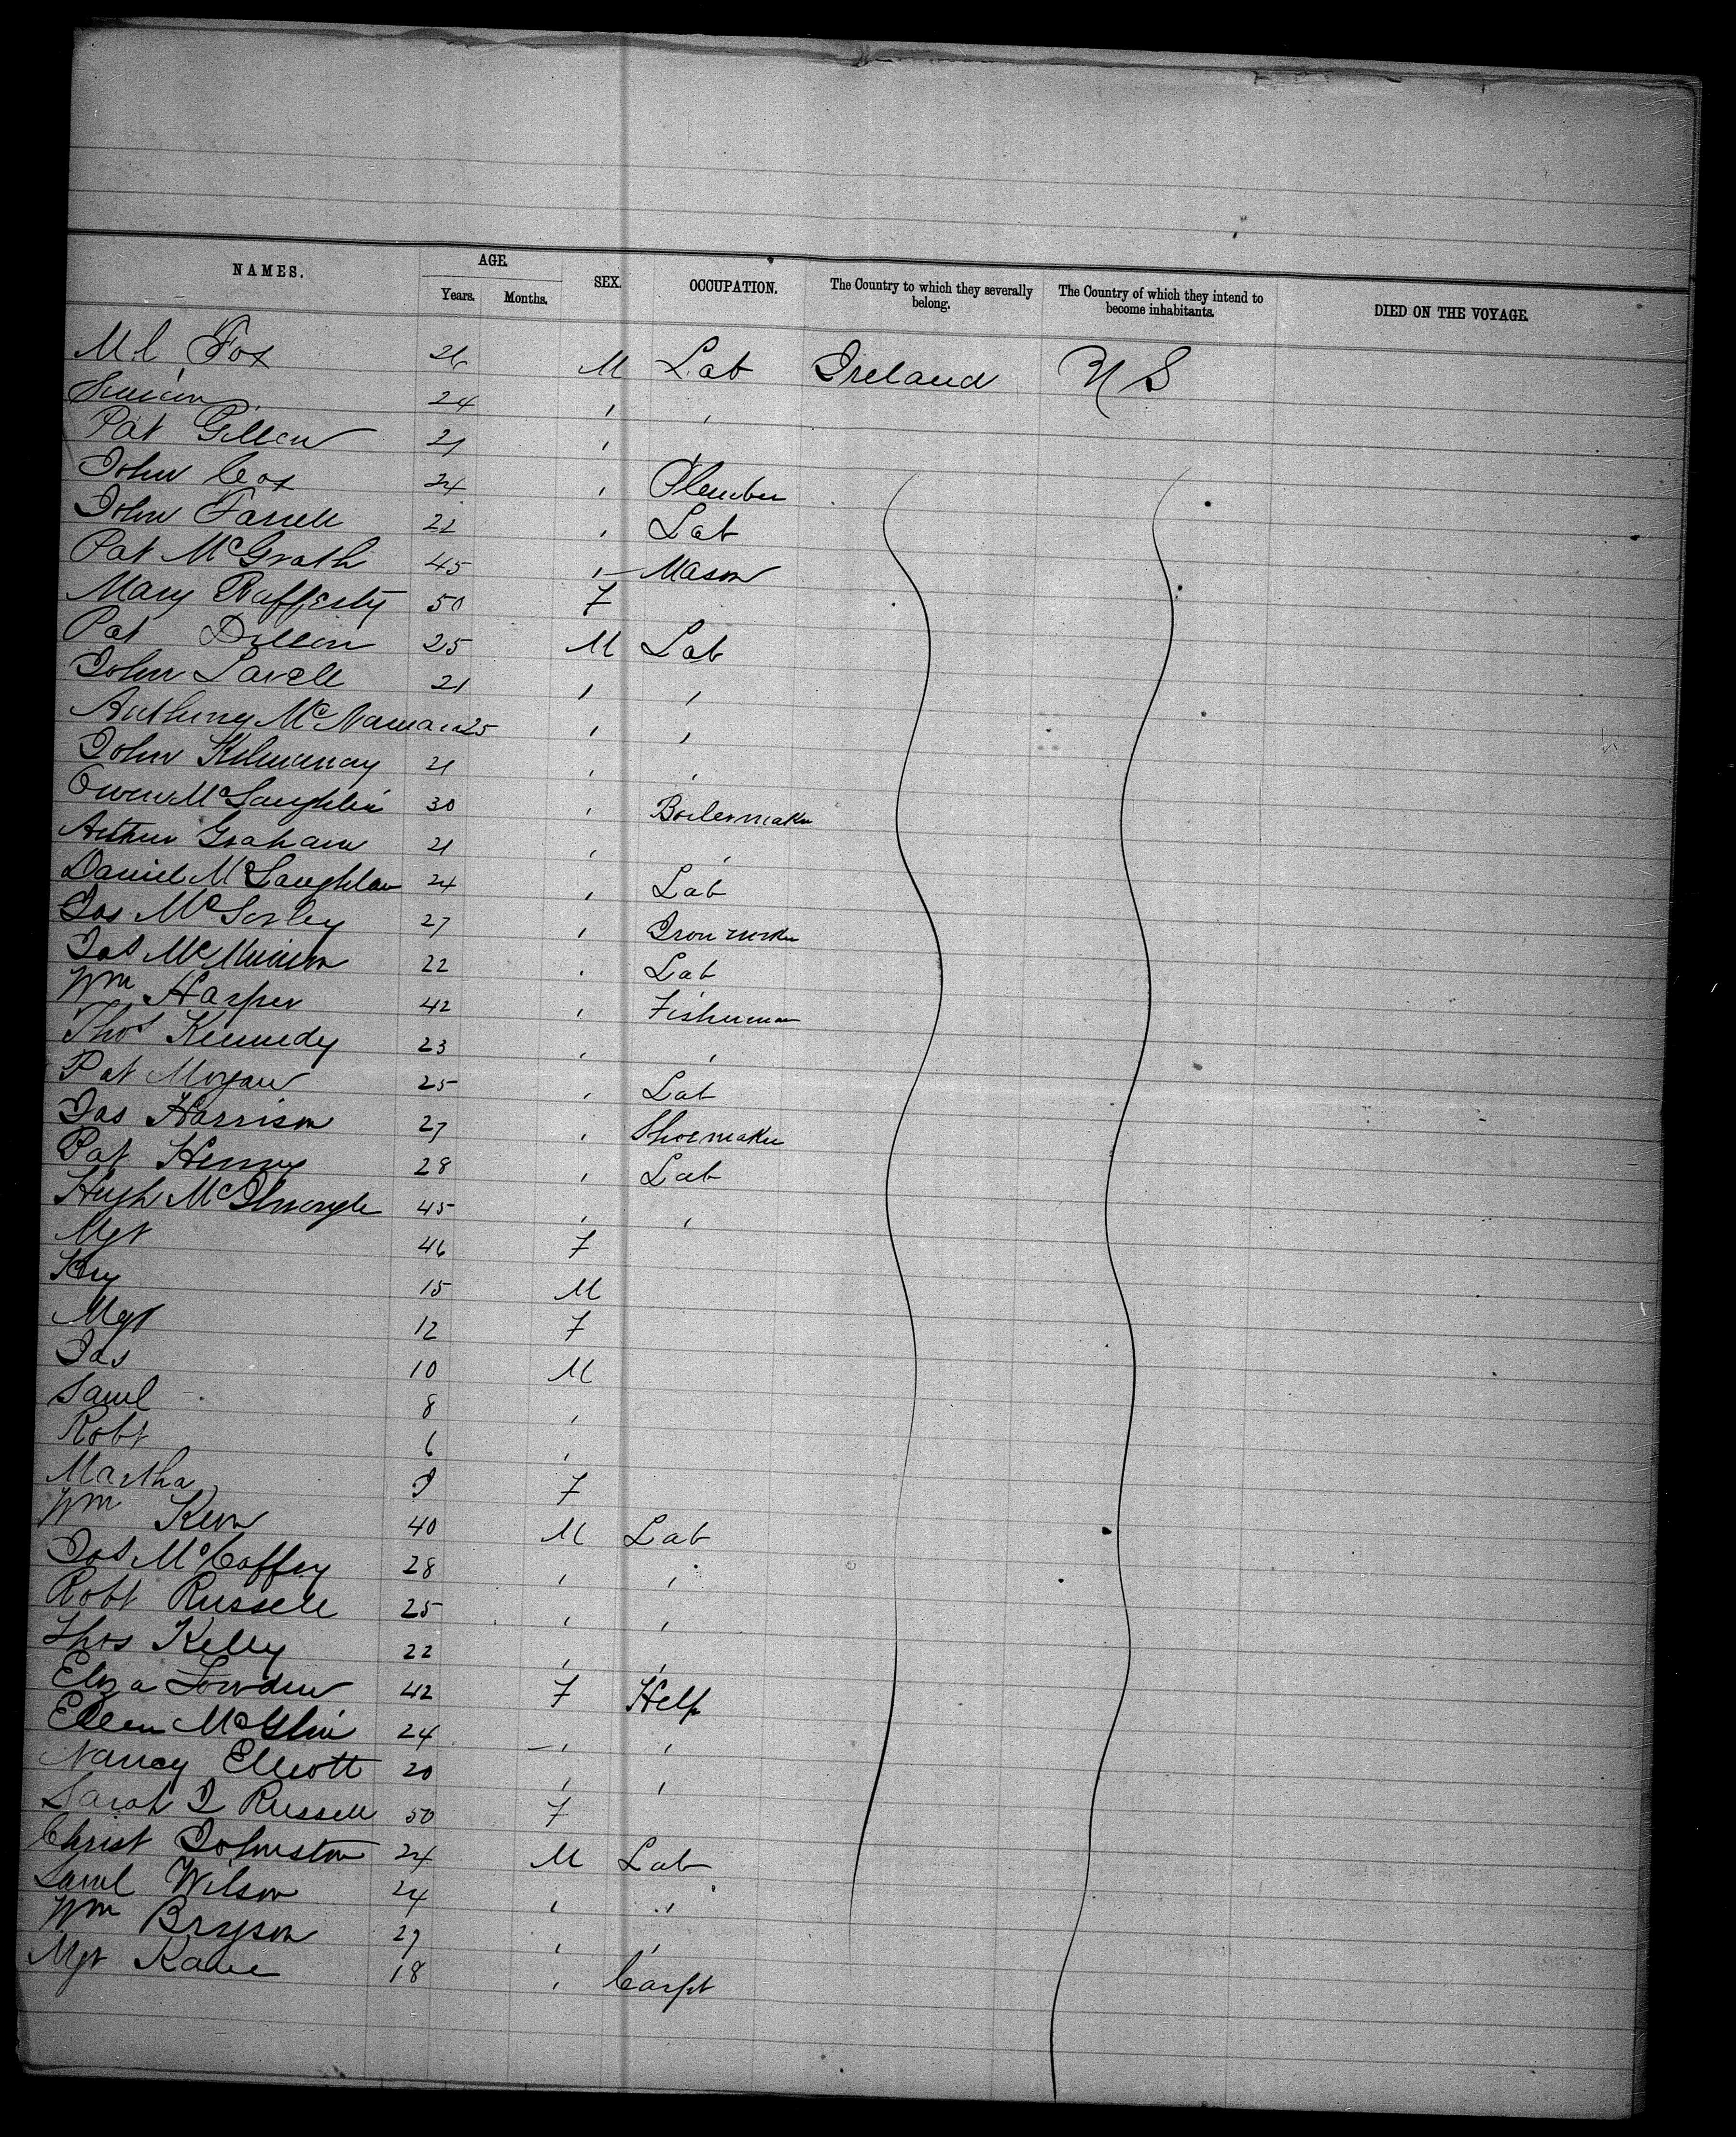 NAMES. AGE. SEX. OCCUPATION. The Country to which they severally belong. The Country of which they intend to become inhabitants. DIED ON THE VOYAGE.
Years. Months.
Ml Fox 26 M Lab Ireland U S
24 , ,
Pat Gillen 21 , ,
John Cox 24 , Plumber
John Farrell 22 , Lab
Pat McGrath 45 , Mason
Mary Rafferty 50 F
Pat Dillon 25 M Lab
John Lavelle 21 , ,
Anthony McNamara 25 , ,
John 21 , ,
Owen McLaughlin 30 , Boilermaker
Arthur Graham 21 , ,
Daniel McLaughlan 24 , Lab
Jas McSorley 27 , Iron worker
Jas 22 , Lab
Wm Harper 42 , Fisherman
Thos Kennedy 23 , ,
Pat Morgan 25 , Lab
Jas Harrison 27 , Shoemaker
Pat Henry 28 , Lab
Hugh 45 , ,
Mgt 46 F
15 M
Mgt 12 F
Jas 10 M
Saml 8 ,
Robt 6 ,
Martha F
Wm Kerr 40 M Lab
Jas McCaffey 28 , ,
Robt Russell 25 , ,
Thos Kelly 22 , ,
Eliza Lowden 42 F Help
Ellen McGlin 24 , ,
Nancy Elliott 20 , ,
Sarah J Russell 50 F
Christ Johnston 24 M Lab
Saml Wilson 24 , ,
Wm Bryson 27 , ,
Mgt Kane 18 , Carpt